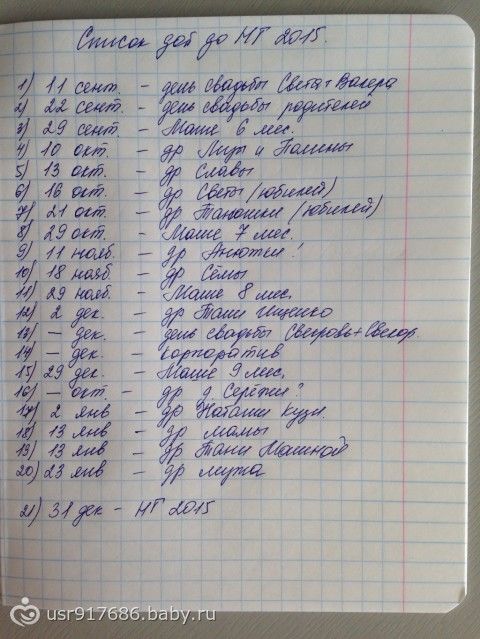 Список дат до НГ 2015.
1) 11 сент. – день свадьбы Света+Валера
2) 22 сент. – день свадьбы родителей
3) 29 сент. – Маше 6 мес.
4) 10 окт. – др Лизы и Полины
5) 13 окт. – др Славы
6) 16 окт. – др Светы (юбилей)
7) 21 окт. – др Танюшки (юбилей)
8) 29 окт. – Маше 7 мес.
9) 11 нояб. – др Анютки!
10) 18 нояб – др Сёмы
11) 29 нояб. – Маше 8 мес.
12) 2 дек. – др Тани Ищенко
13) — дек. – день свадьбы Свекровь+Свекор.
14) — дек. – корпоратив
15) 29 дек. – Маше 9 мес.
16) — окт. – др д. Серёжи?
17) 2 янв – др Наташи Кузн.
18) 13 янв – др мамы
19) 13 янв – др Тани
20) 23 янв – др мужа
21) 31 дек – НГ 2015
usr917686.baby.ru